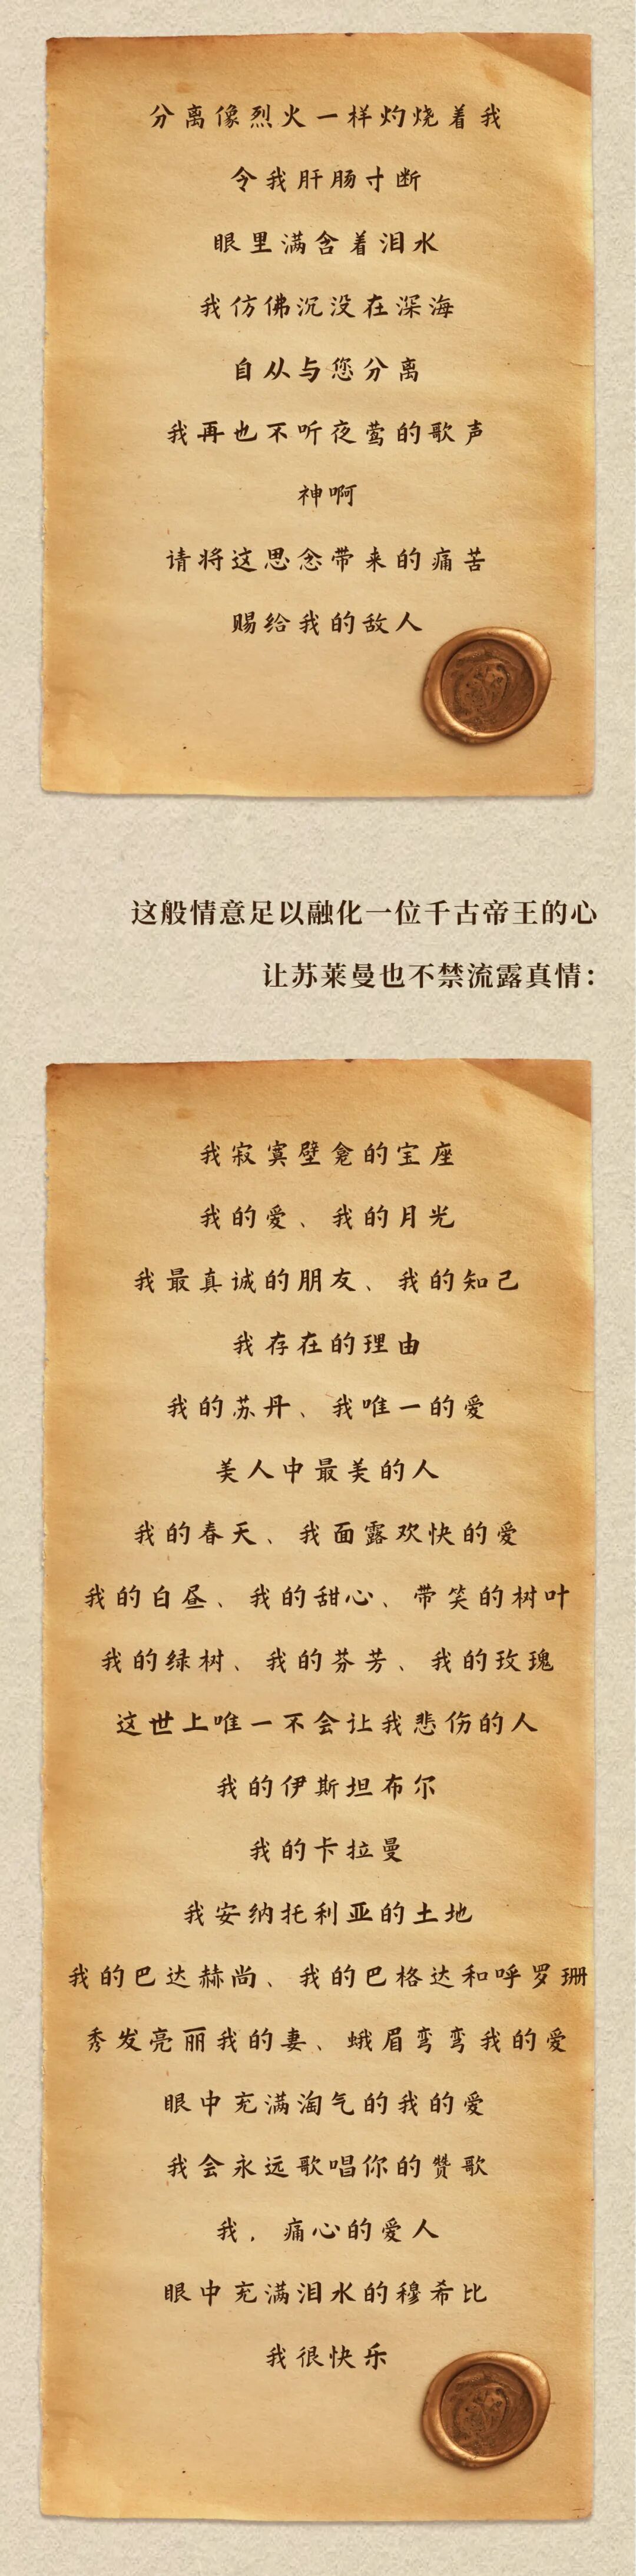 分离像烈火一样灼烧着我
令我肝肠寸断
眼里满含着泪水
我仿佛沉没在深海
自从与您分离
我再也不听夜莺的歌声
神啊
请将这思念带来的痛苦
赐给我的敌人
这般情意足以融化一位千古帝王的心
让苏莱曼也不禁流露真情：
我寂寞壁龛的宝座
我的爱、我的月光
我最真诚的朋友、我的知己
我存在的理由
我的苏丹、我唯一的爱
美人中最美的人
我的春天、我面露欢快的爱
我的白昼、我的甜心、带笑的树叶
我的绿树、我的芬芳、我的玫瑰
这世上唯一不会让我悲伤的人
我的伊斯坦布尔
我的卡拉曼
我安纳托利亚的土地
我的巴达赫尚、我的巴格达和呼罗珊
秀发亮丽我的妻、蛾眉弯弯我的爱
眼中充满淘气的我的爱
我会永远歌唱你的赞歌
我，痛心的爱人
眼中充满泪水的穆希比
我很快乐